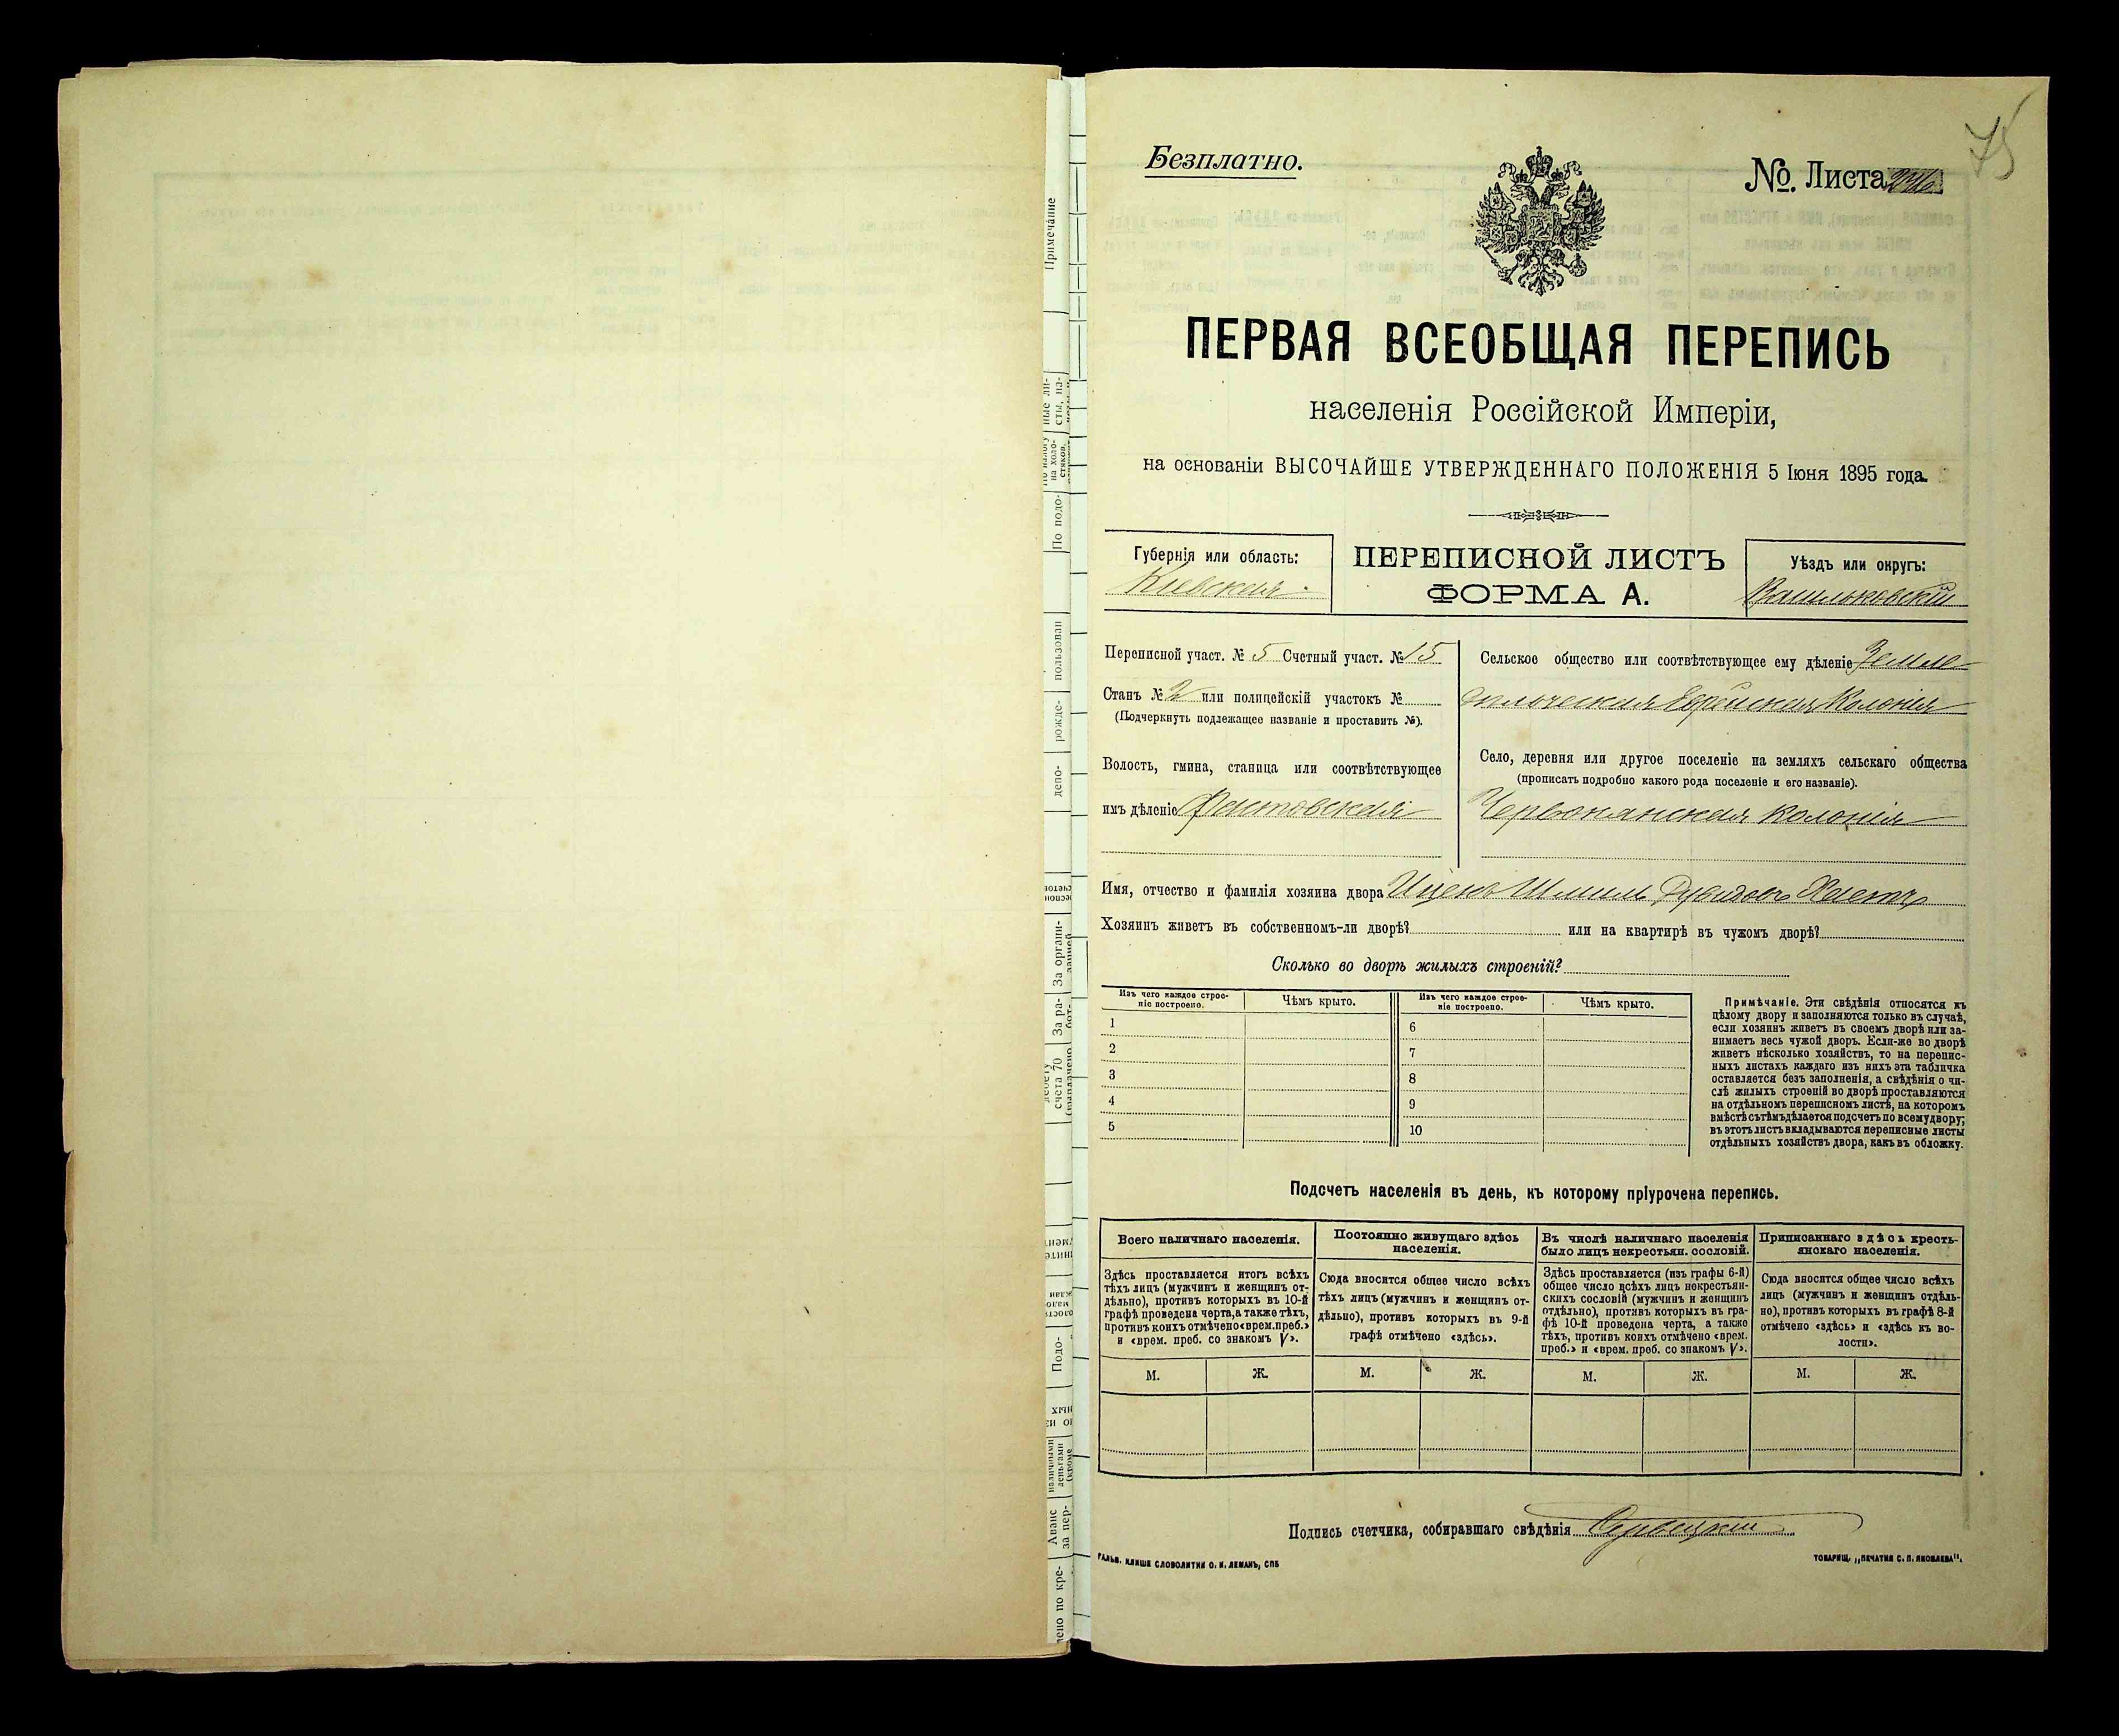 Безплатно.
№ Листа
75
ПЕРВАЯ ВСЕОБЩАЯ ПЕРЕПИСЬ
населенія Россійской Имперіи,
на основаніи ВЫСОЧАЙШЕ УТВЕРЖДЕННАГО ПОЛОЖЕНІЯ 5 Іюня 1895 года.
Губернія или область:
Кіевская.
ПЕРЕПИСНОЙ ЛИСТЪ
ФОРМА А.
Уѣздъ или округъ:
Васильковскій
Переписной участ. № 5 Счетный участ. № 15
Станъ № 2 или полицейскій участокъ №
(Подчеркнуть подлежащее названіе и проставить №).
Волость, гмина, станица или соотвѣтствующее
имъ дѣленіе Фастовская
Сельское общество или соотвѣтствующее ему дѣленіе Земле
дѣльческая Еврейская Колонія
Село, деревня или другое поселеніе на земляхъ сельскаго общества
(прописать подробно какого рода поселеніе и его названіе).
Червонянская колонія
Имя, отчество и фамилія хозяина двора Ицекъ Шмиль
Хозяинъ живетъ въ собственномъ-ли дворѣ? или на квартирѣ въ чужомъ дворѣ?
Сколько во дворѣ жилыхъ строеній?
Изъ чего каждое строе-
ніе построено.
Чѣмъ крыто.
Изъ чего каждое строе-
ніе построено.
Чѣмъ крыто.
1
2
3
4
5
6
7
8
9
10
Примѣчаніе. Эти свѣдѣнія относятся къ
цѣлому двору и заполняются только въ случаѣ,
если хозяинъ живетъ въ своемъ дворѣ или за-
нимаетъ весь чужой дворъ. Если-же во дворѣ
живетъ нѣсколько хозяйствъ, то на перепис-
ныхъ листахъ каждаго изъ нихъ эта табличка
оставляется безъ заполненія, а свѣдѣнія о чи-
слѣ жилыхъ строеній во дворѣ проставляются
на отдѣльномъ переписномъ листѣ, на которомъ
вмѣстѣ съ тѣмъ дѣлается подсчетъ по всему двору;
въ этотъ листъ вкладываются переписные листы
отдѣльныхъ хозяйствъ двора, какъ въ обложку.
Подсчетъ населенія въ день, къ которому пріурочена перепись.
Всего наличнаго населенія.
Здѣсь проставляется итогъ всѣхъ
тѣхъ лицъ (мужчинъ и женщинъ от-
дѣльно), противъ которыхъ въ 10-й
графѣ проведена черта, а также тѣхъ,
противъ коихъ отмѣчено «врем. преб.»
и «врем. преб. со знакомъ V».
Постоянно живущаго здѣсь
населенія.
Сюда вносится общее число всѣхъ
тѣхъ лицъ (мужчинъ и женщинъ от-
дѣльно), противъ которыхъ въ 9-й
графѣ отмѣчено «здѣсь».
Въ числѣ наличнаго населенія
было лицъ некрестьян. сословій.
Здѣсь проставляется (изъ графы 6-й)
общее число всѣхъ лицъ некрестьян-
скихъ сословій (мужчинъ и женщинъ
отдѣльно), противъ которыхъ въ гра-
фѣ 10-й проведена черта, а также
тѣхъ, противъ коихъ отмѣчено «врем.
преб.» и «врем. преб. со знакомъ V».
Приписаннаго здѣсь кресть-
янскаго населенія.
Сюда вносится общее число всѣхъ
лицъ (мужчинъ и женщинъ отдѣль-
но), противъ которыхъ въ графѣ 8-й
отмѣчено «здѣсь» и «здѣсь къ во-
лости».
М. Ж. М. Ж. М. Ж. М. Ж.
Подпись счетчика, собиравшаго свѣдѣнія
ГАЛЬВ. КЛИШЕ СЛОВОЛИТНИ О. И. ЛЕМАНЪ, СПБ
ТОВАРИЩ. „ПЕЧАТНЯ С. П. ЯКОВЛЕВА".
Примечание
ные ли-
сты, на-
на холо-
стяков.
По подо-
пользован
рожде-
депо-
За органи-
За ра-
бот-
счета 70
Подо-
наличными
деньгами
(кроме
Аванс
за пер-
ено по кре-